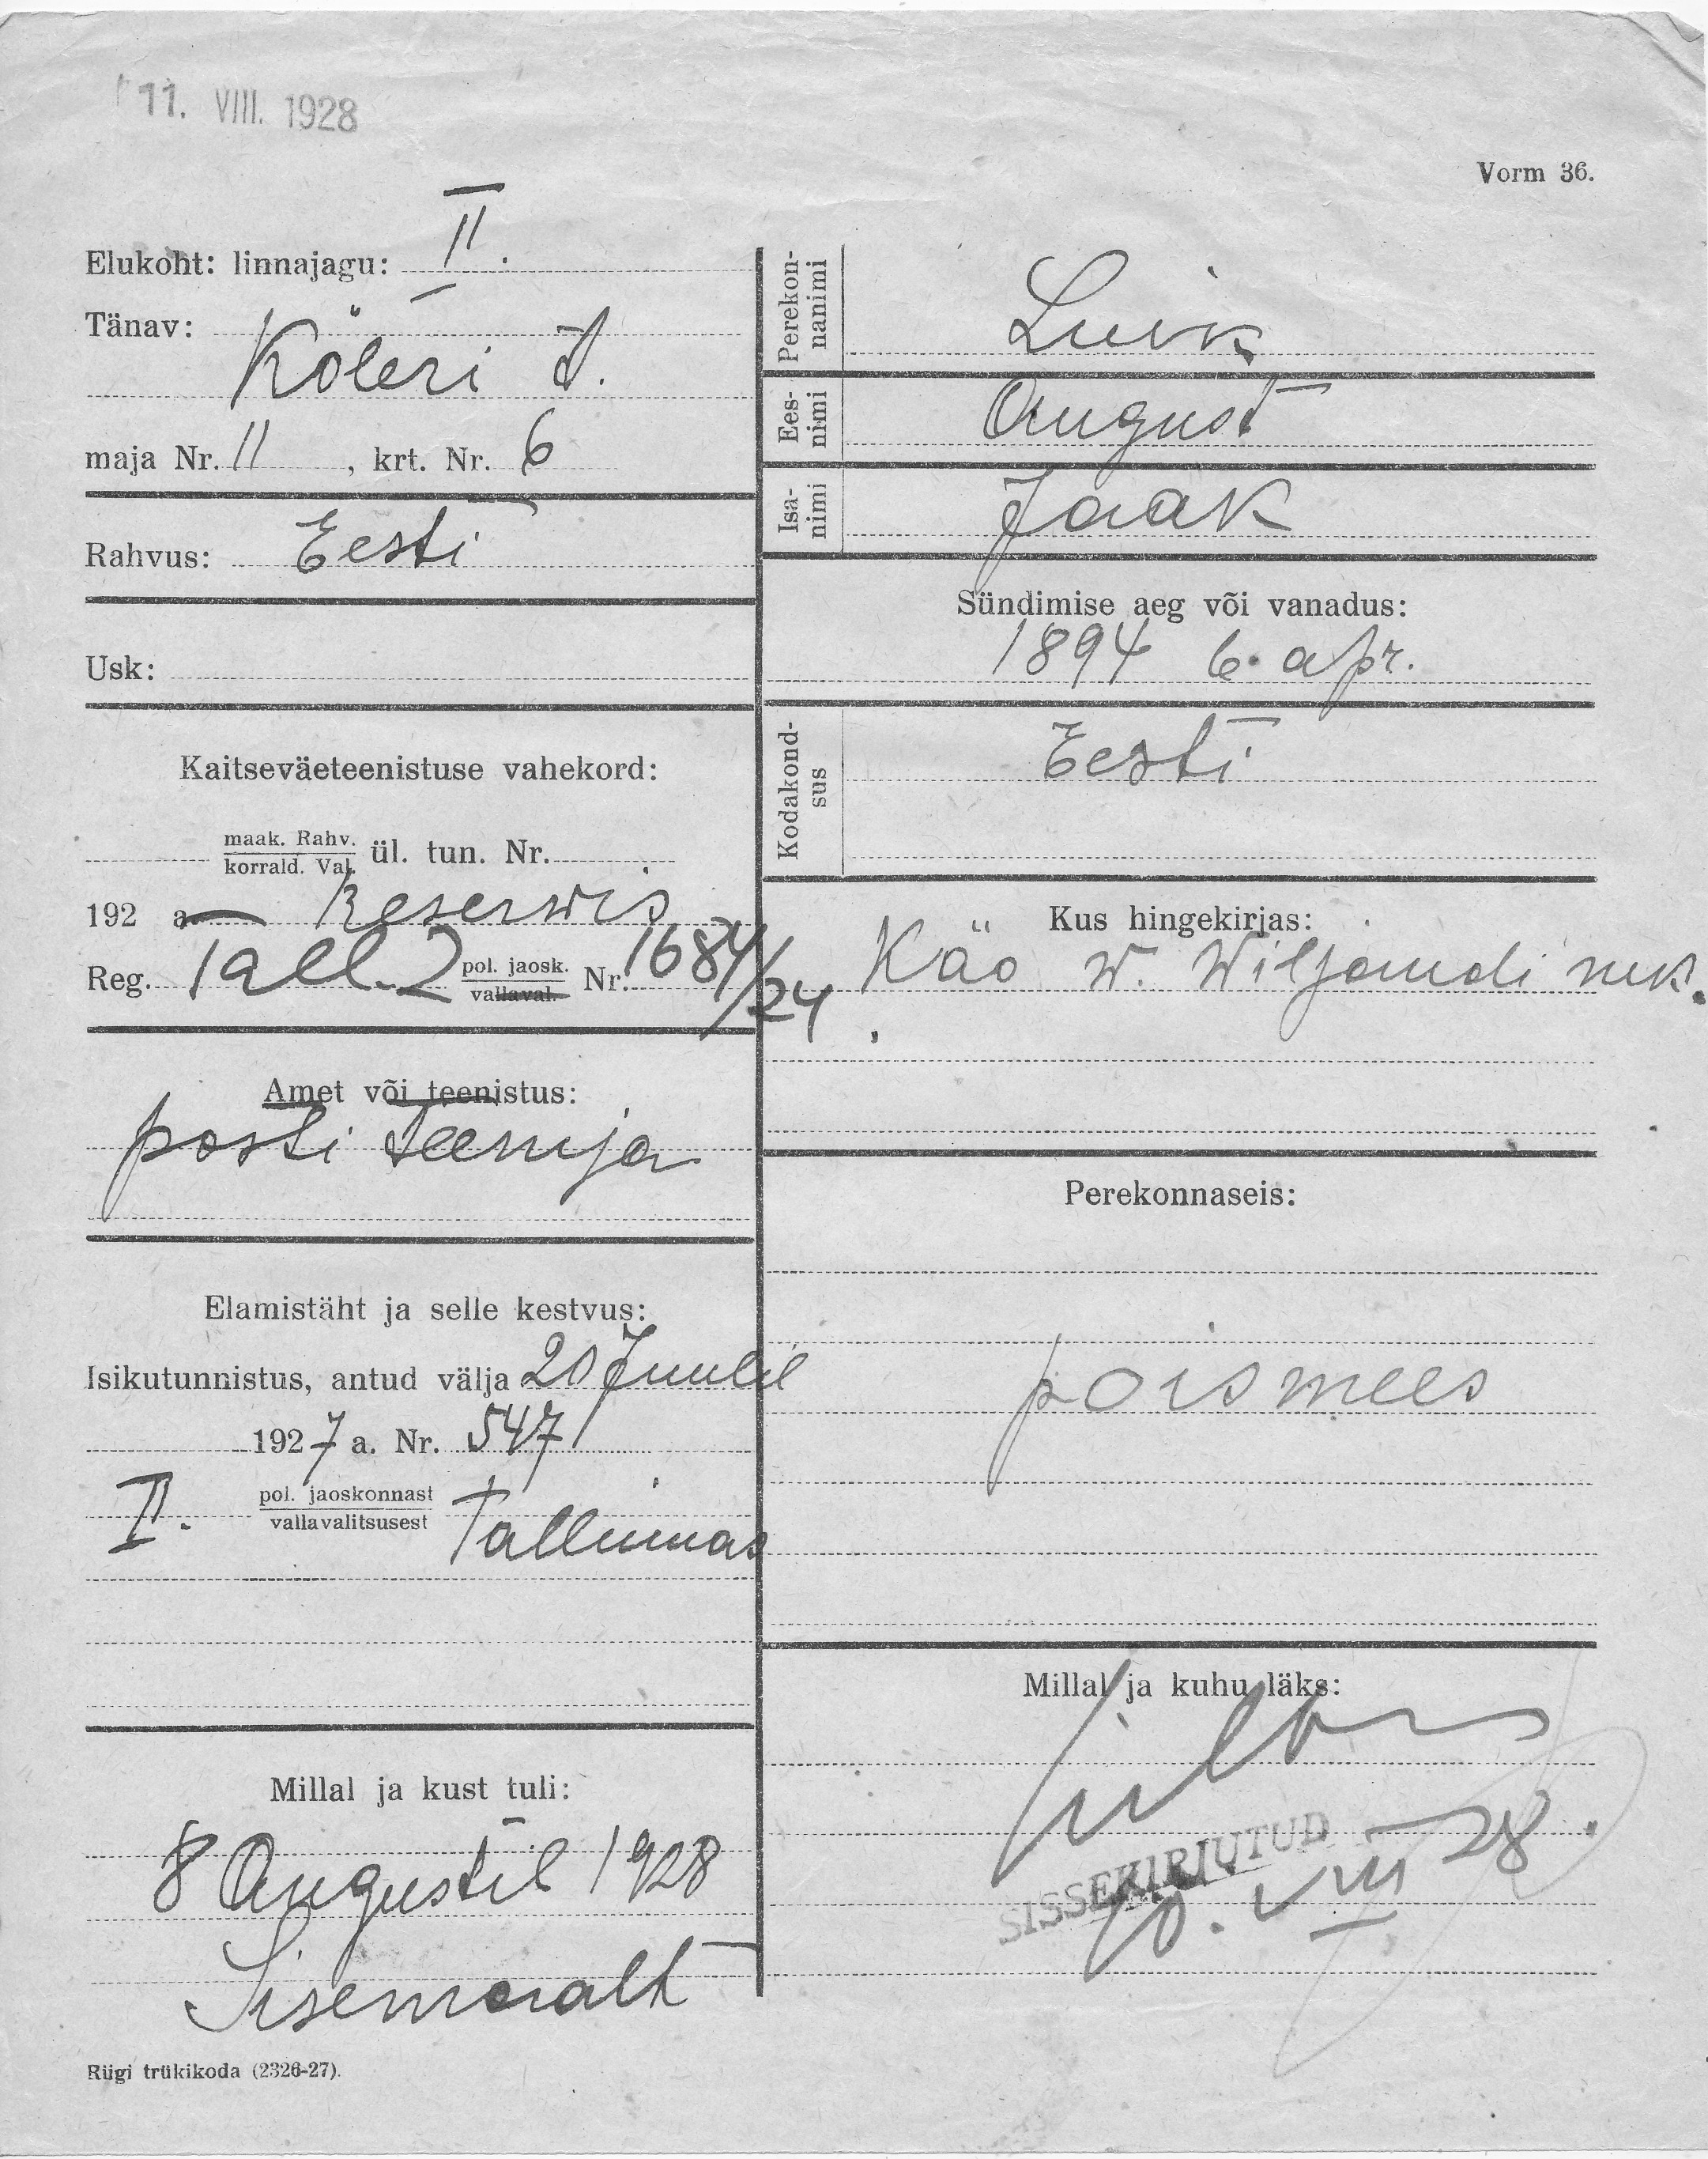 11. VIII. 1928
Vorm 36.
Elukoht: linnajagu: II.
Tänav:
Köleri t.
maja Nr. 11, krt. Nr. 6
Rahvus: Eesti
Usk:
Kaitseväeteenistuse vahekord:
maak. Rahv.
korrald. Val. ül. tun. Nr.
192 a Reserwis
Reg. Tall. 2 pol. jaosk. Nr. 1684/24
vallaval.
Amet või teenistus:
posti teenija
Elamistäht ja selle kestvus:
Isikutunnistus, antud välja 20 Juulil
1927 a. Nr. 547
II. pol. jaoskonnast
vallavalitsusest Tallinnas
Millal ja kust tuli:
8 Augustil 1928
Sisemaalt
Riigi trükikoda (2326-27).
Perekon-
nanimi
Luik
Ees-
nimi
August
Isa-
nimi
Jaak
Sündimise aeg või vanadus:
1894 6. apr.
Kodakond-
sus
Eesti
Kus hingekirjas:
Käo w. Wiljandi mk.
Perekonnaseis:
poismees
Millal ja kuhu läks:
SISSEKIRJUTUD
VIII 28.